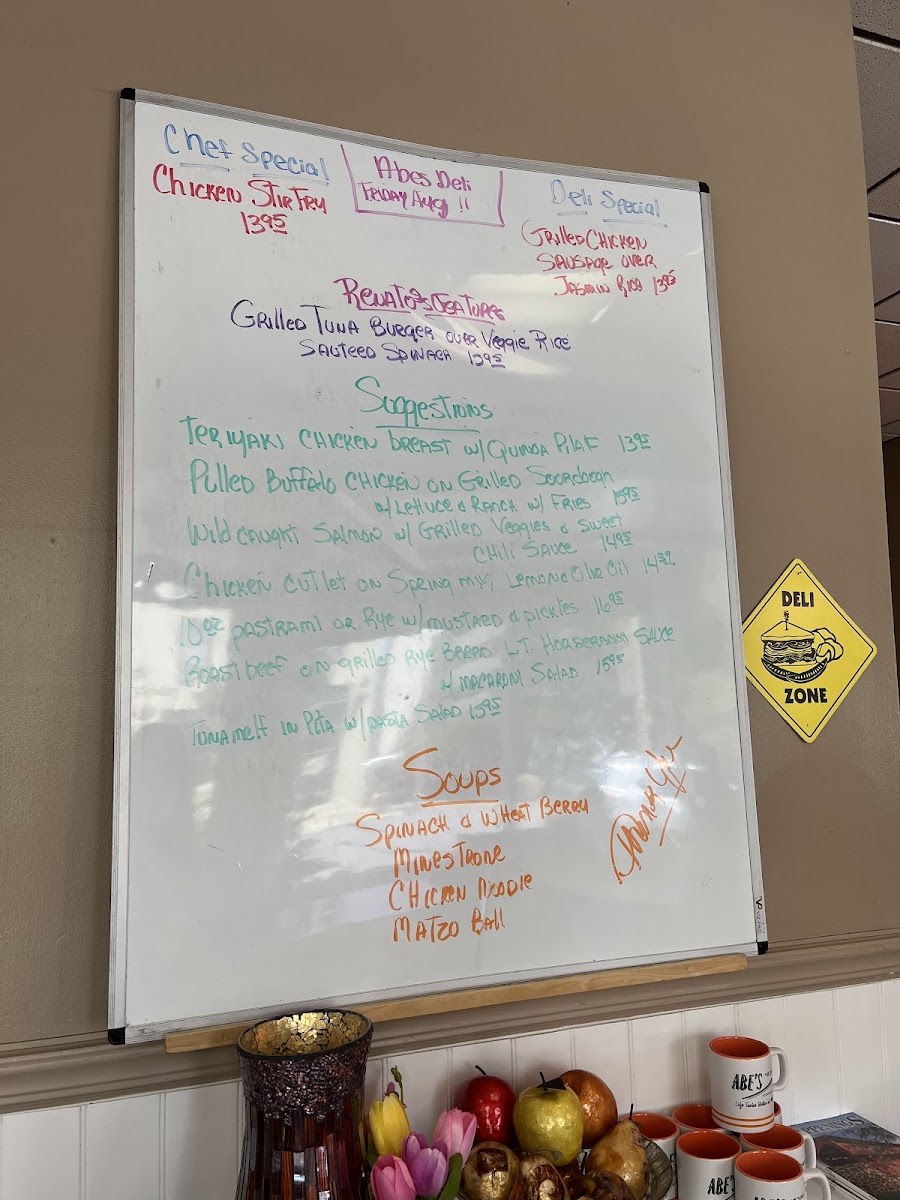 Chef Special
Chicken Stir Fry
13 95
Abes Deli
Friday Aug 11
Deli Special
Grilled Chicken
Sausage over
Jasmin Rice 13 95
Renato's Features
Grilled Tuna Burger over Veggie Rice
Sauteed Spinach 15 95
Suggestions
Teriyaki Chicken breast w/ Quinoa Pilaf 13 95
Pulled Buffalo Chicken on Grilled Sourdough
w/ Lettuce & Ranch w/ Fries 15 95
Wild caught Salmon w/ Grilled Veggies & Sweet
Chili Sauce 14 95
Chicken cutlet on Spring mix, Lemon & Olive Oil 14 39
10 oz pastrami or Rye w/ mustard & pickles 16 95
Roast beef on grilled Rye Bread L.T. Horseradish Sauce
w/ macaroni Salad 15 95
Tuna melt in Pita w/ pasta Salad 15 95
Soups
Spinach & Wheat Berry
Minestrone
Chicken Noodle
Matzo Ball
Thank You
DELI
ZONE
ABE'S
ABE'S
ABE'S